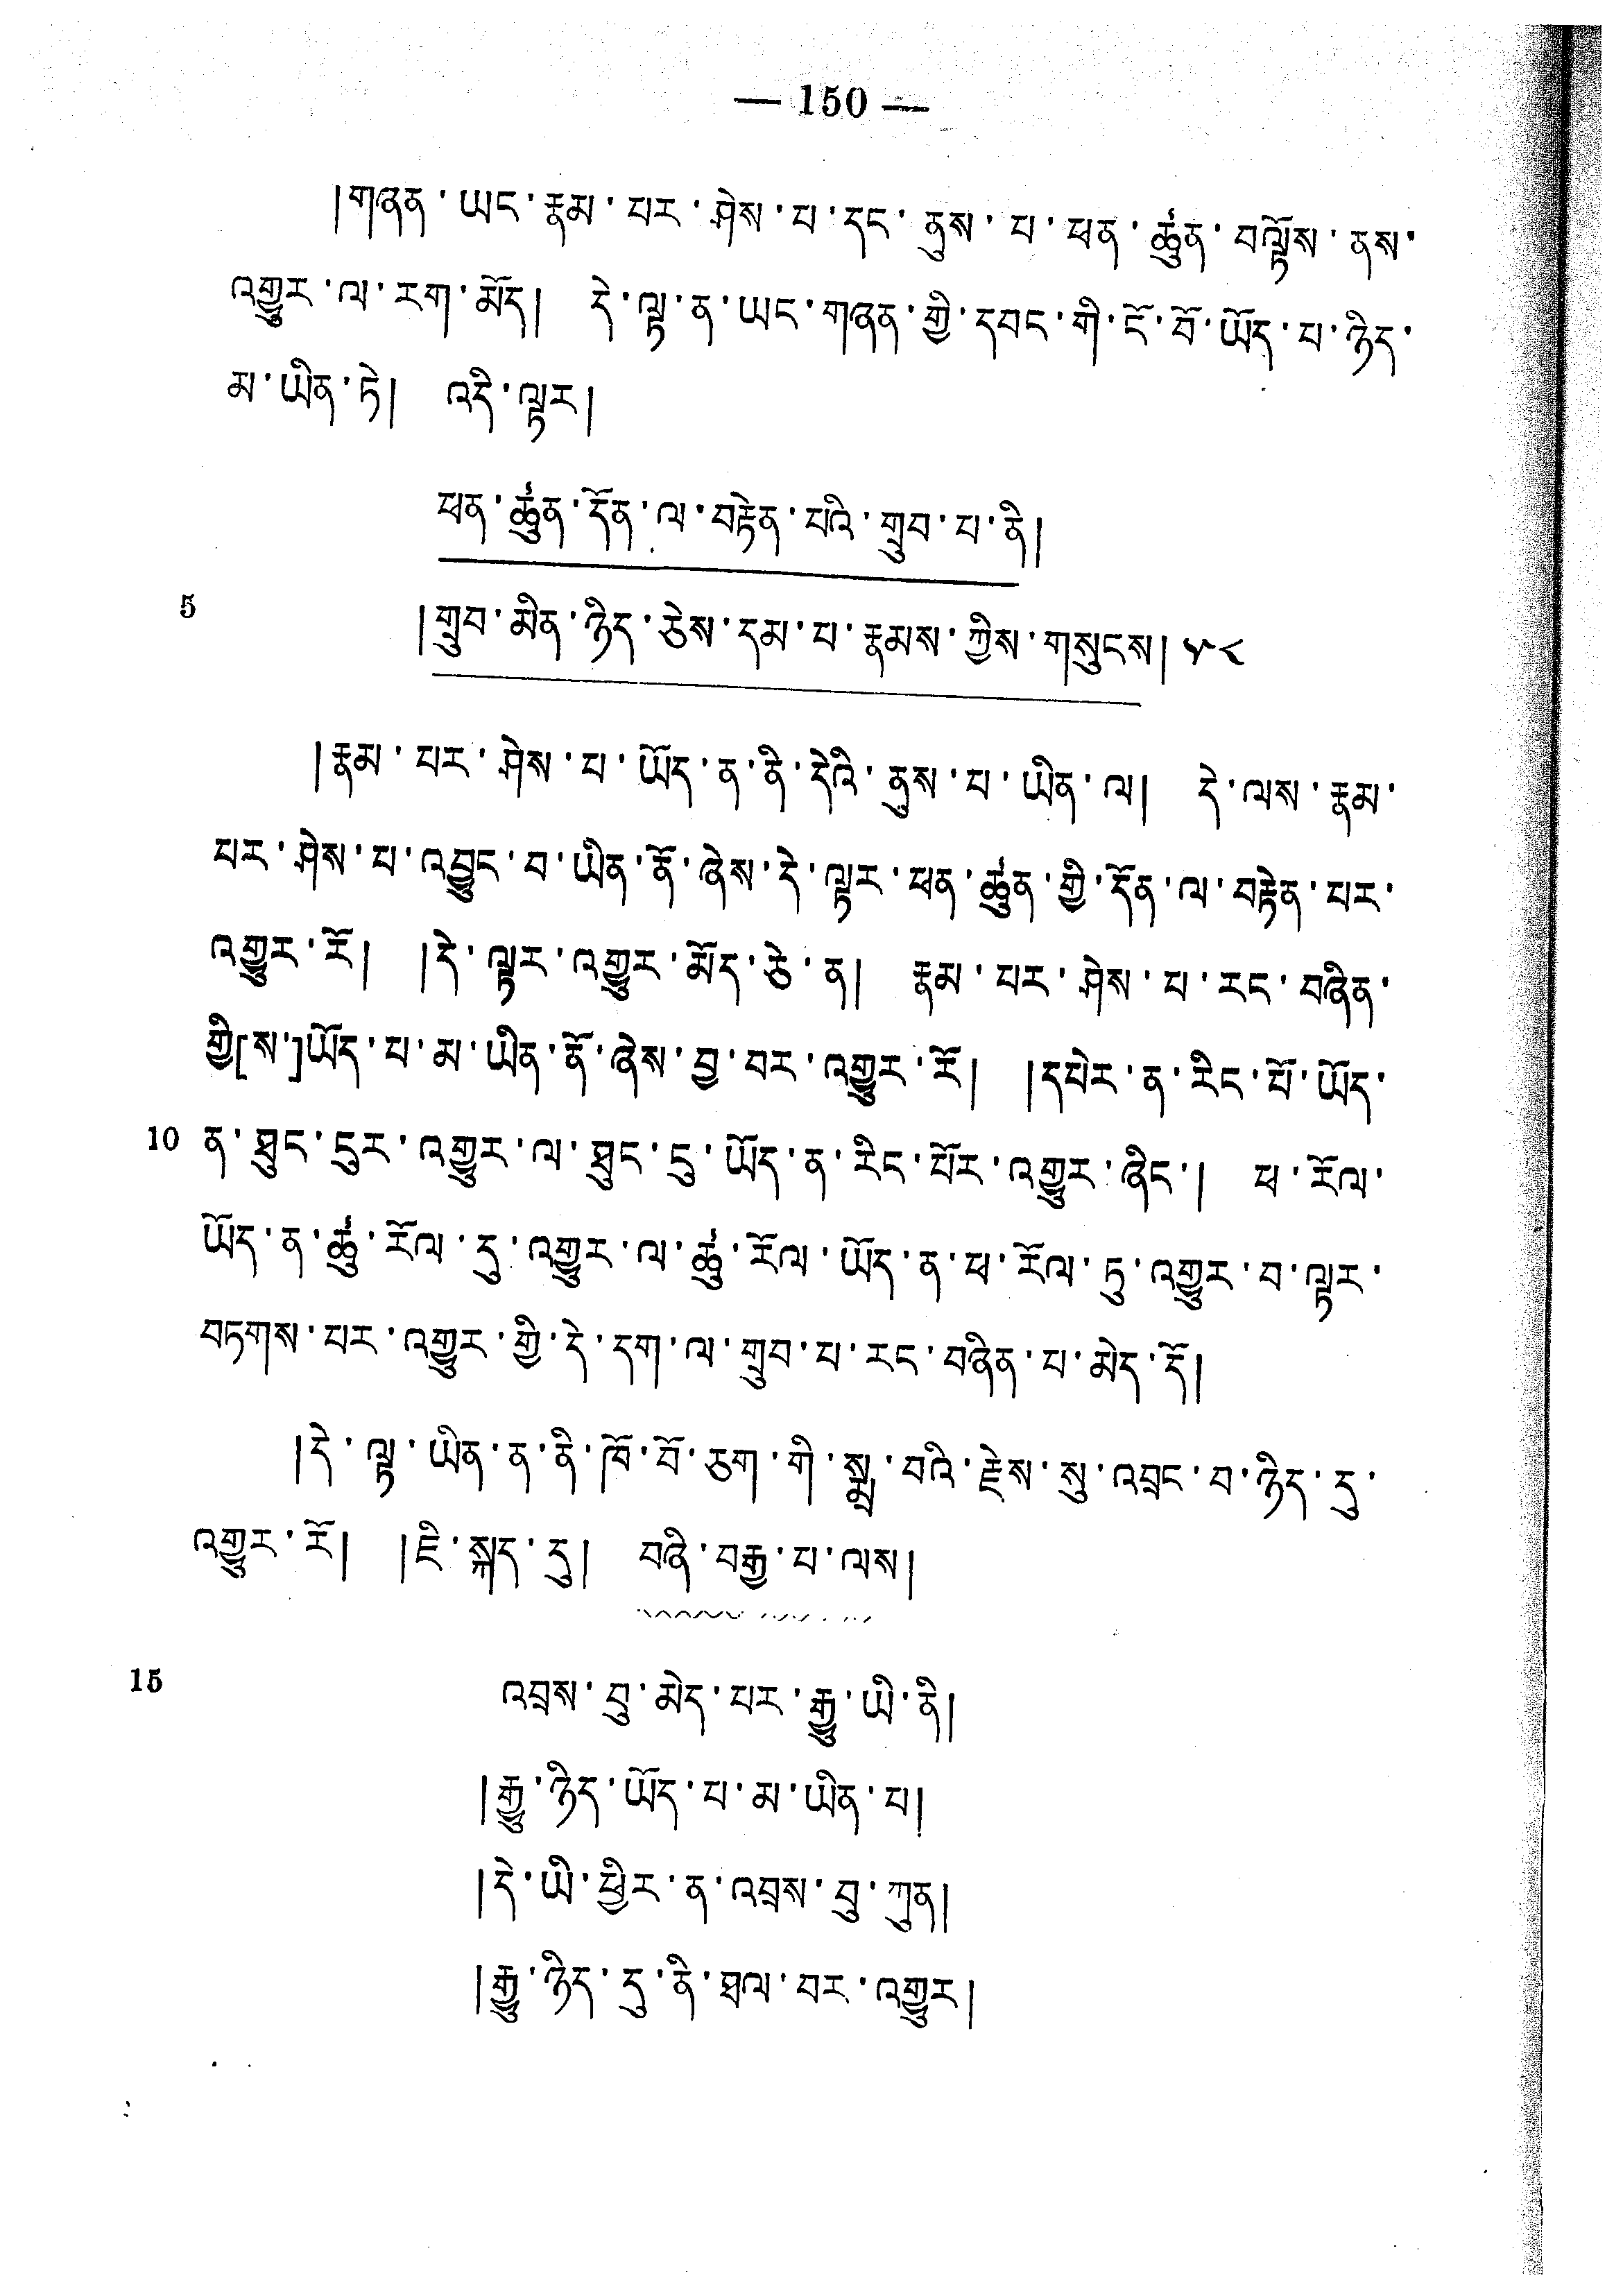 — 150 —
།གཞན་ཡང་རྣམ་པར་ཤེས་པ་དང་ནུས་པ་ཕན་ཚུན་བལྟོས་ནས་
འགྱུར་ལ་རག་མོད། དེ་ལྟ་ན་ཡང་གཞན་གྱི་དབང་གི་ངོ་བོ་ཡོད་པ་ཉིད་
མ་ཡིན་ཏེ། འདི་ལྟར།
ཕན་ཚུན་དོན་ལ་བརྟེན་པའི་གྲུབ་པ་ནི།
5 །གྲུབ་མིན་ཉིད་ཅེས་དམ་པ་རྣམས་ཀྱིས་གསུངས། ༥༨
།རྣམ་པར་ཤེས་པ་ཡོད་ན་ནི་དེའི་ནུས་པ་ཡིན་ལ། དེ་ལས་རྣམ་
པར་ཤེས་པ་འབྱུང་བ་ཡིན་ནོ་ཞེས་དེ་ལྟར་ཕན་ཚུན་གྱི་དོན་ལ་བརྟེན་པར་
འགྱུར་རོ། །དེ་ལྟར་འགྱུར་མོད་ཅེ་ན། རྣམ་པར་ཤེས་པ་རང་བཞིན་
གྱི[ས་]ཡོད་པ་མ་ཡིན་ནོ་ཞེས་བྱ་བར་འགྱུར་རོ། །དཔེར་ན་རིང་པོ་ཡོད་
10 ན་ཐུང་ངུར་འགྱུར་ལ་ཐུང་ངུ་ཡོད་ན་རིང་པོར་འགྱུར་ཞིང་། ཕ་རོལ་
ཡོད་ན་ཚུ་རོལ་དུ་འགྱུར་ལ་ཚུ་རོལ་ཡོད་ན་ཕ་རོལ་ཏུ་འགྱུར་བ་ལྟར་
བཏགས་པར་འགྱུར་གྱི་དེ་དག་ལ་གྲུབ་པ་རང་བཞིན་པ་མེད་དོ།
།དེ་ལྟ་ཡིན་ན་ནི་ཁོ་བོ་ཅག་གི་སྨྲ་བའི་རྗེས་སུ་འབྲང་བ་ཉིད་དུ་
འགྱུར་རོ། །ཇི་སྐད་དུ། བཞི་བརྒྱ་པ་ལས།
15 འབྲས་བུ་མེད་པར་རྒྱུ་ཡི་ནི།
།རྒྱུ་ཉིད་ཡོད་པ་མ་ཡིན་པ།
།དེ་ཡི་ཕྱིར་ན་འབྲས་བུ་ཀུན།
།རྒྱུ་ཉིད་དུ་ནི་ཐལ་བར་འགྱུར།